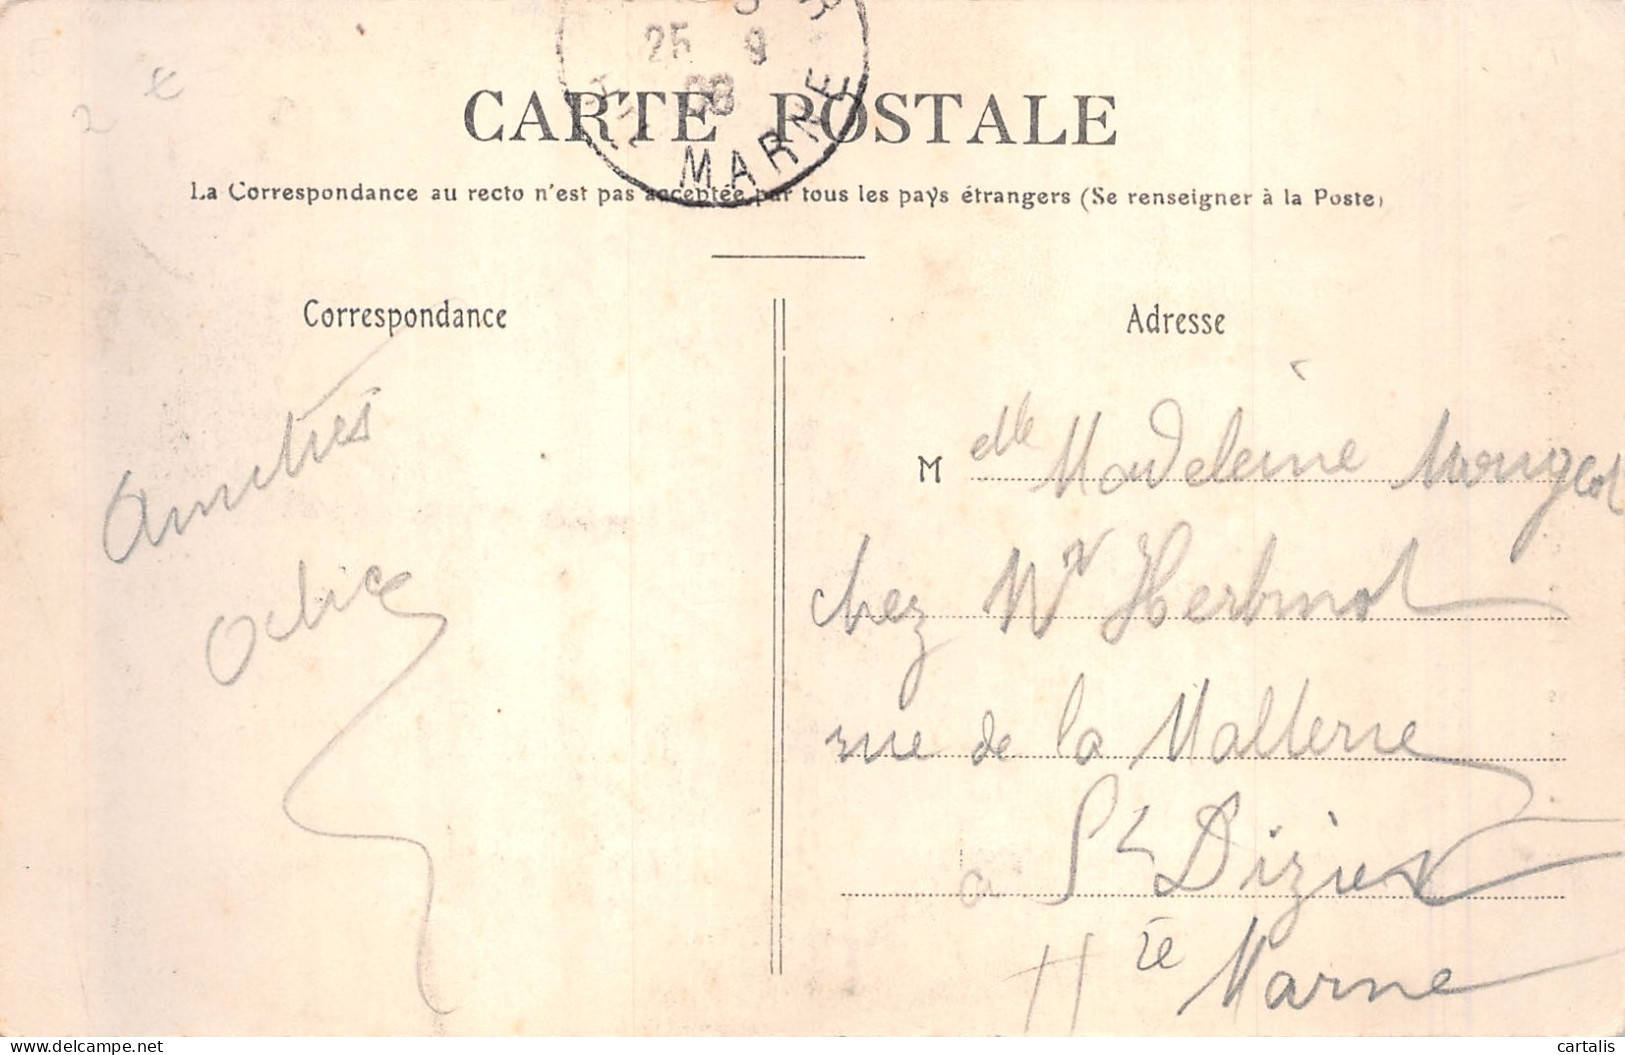 2 €
25 9
08
MARNE
CARTE POSTALE
La Correspondance au recto n'est pas acceptée par tous les pays étrangers (Se renseigner à la Poste)
Correspondance
Adresse
Amitiés
M elle Madeleine Mougeot
chez Mr Herbinot
rue de la
a St Dizier
Hte Marne
cartalis